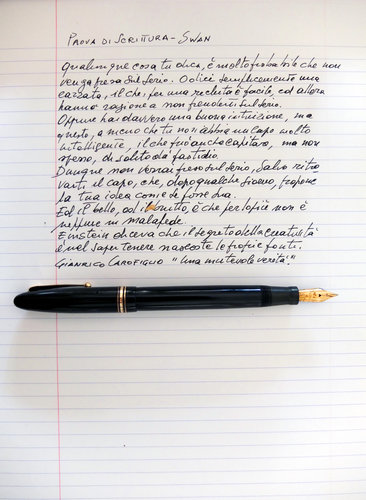 PROVA DI SCRITTURA - SWAN
Qualunque cosa tu dica, è molto probabile che non
venga presa sul serio. O dici semplicemente una
cazzata, il che, per una recluta è facile, ed allora
hanno ragione a non prenderti sul serio.
Oppure hai davvero una buona intuizione, ma
questo, a meno che tu non abbia un capo molto
intelligente, il che può anche capitare, ma non
spesso, di solito dà fastidio.
Dunque non verrai preso sul serio, salvo ritro
varti il capo, che, dopo qualche giorno, propone
la tua idea come se fosse sua.
Ed il bello, od il brutto, è che per lo più non è
neppure in malafede.
Einstein diceva che il segreto della creatività
è nel saper tenere nascoste le proprie fonti.
GIANRICO CAROFIGLIO "Una mutevole verità".